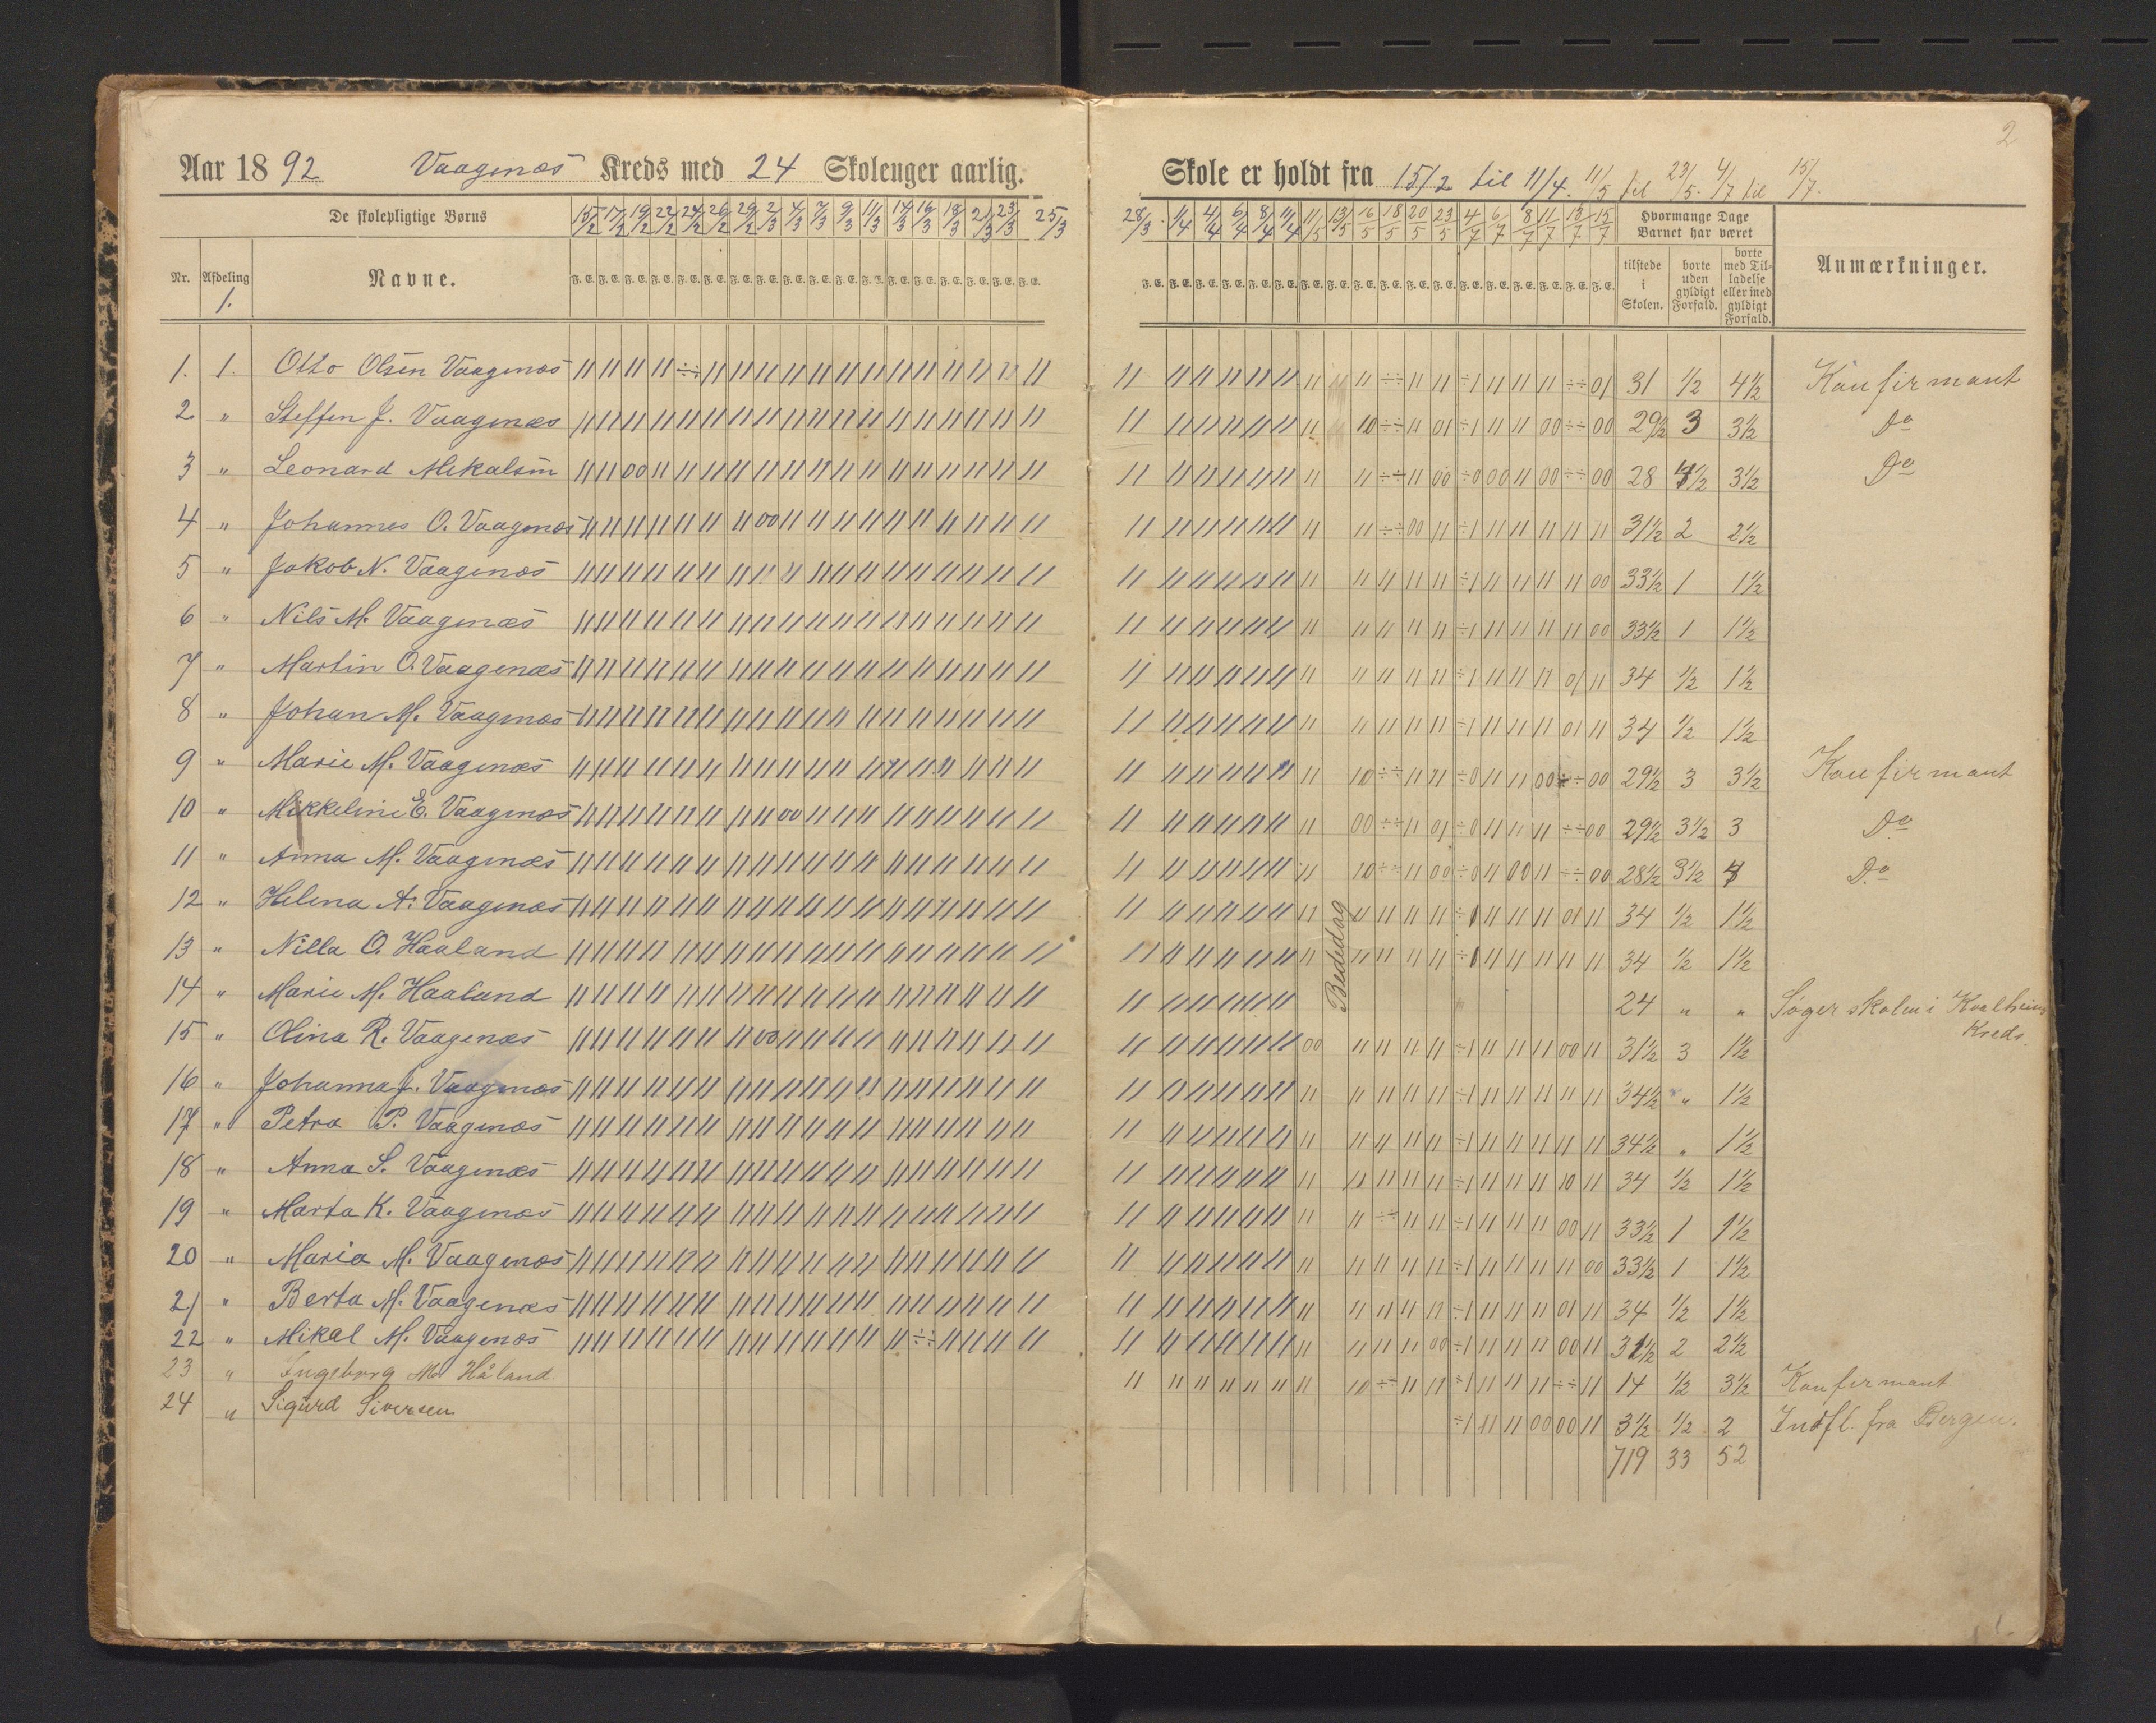 2
Aar 1892 Vaagenæs Kreds med 24 Skoleuger aarlig. Skole er holdt fra 15/2 til 11/4. 11/5 til 23/5. 4/7 til 15/7.
De skolepligtige Børns 15/2 17/2 19/2 22/2 24/2 26/2 29/2 2/3 4/3 7/3 9/3 11/3 14/3 16/3 18/3 21/3 23/3 25/3 28/3 1/4 4/4 6/4 8/4 11/4 11/5 13/5 16/5 18/5 20/5 23/5 4/7 6/7 8/7 11/7 13/7 15/7 Hvormange Dage Barnet har været
Nr. Afdeling 1. Navne. F. E. tilstede i Skolen. borte uden gyldigt Forfald. borte med Tilladelse eller med gyldigt Forfald. Anmærkninger.
1. 1. Otto Olsen Vaagenæs 31 1/2 4 1/2 Konfirmant
2 " Steffen J. Vaagenæs 29 1/2 3 3 1/2 Do
3 " Leonard Mikalsen 28 4 1/2 3 1/2 Do
4 " Johannes O. Vaagenæs 31 1/2 2 2 1/2
5 " Jakob N. Vaagenæs 33 1/2 1 1 1/2
6 " Nils M. Vaagenæs 33 1/2 1 1 1/2
7 " Martin O. Vaagenæs 34 1/2 1 1/2
8 " Johan M. Vaagenæs 34 1/2 1 1/2
9 " Marie M. Vaagenæs 29 1/2 3 3 1/2 Konfirmant
10 " Mikkeline E. Vaagenæs 29 1/2 3 1/2 3 Do
11 " Anna M. Vaagenæs 28 1/2 3 1/2 4 Do
12 " Helena A. Vaagenæs 34 1/2 1 1/2
13 " Nilla O. Haaland 34 1/2 1 1/2
Bededag
14 " Marie M. Haaland 24 " " Søger skolen i Kvalheim Kreds.
15 " Olina R. Vaagenæs 31 1/2 3 1 1/2
16 " Johanna J. Vaagenæs 34 1/2 " 1 1/2
17 " Petra P. Vaagenæs 34 1/2 " 1 1/2
18 " Anna S. Vaagenæs 34 1/2 1 1/2
19 " Marta K. Vaagenæs 33 1/2 1 1 1/2
20 " Maria M. Vaagenæs 33 1/2 1 1 1/2
21 " Berta M. Vaagenæs 34 1/2 1 1/2
22 " Mikal M. Vaagenæs 31 1/2 2 2 1/2
23 " Ingeborg M. Håland 14 1/2 3 1/2 Konfirmant
24 " Sigurd Siversen 3 1/2 1/2 2 Indfl. fra Bergen.
719 33 52